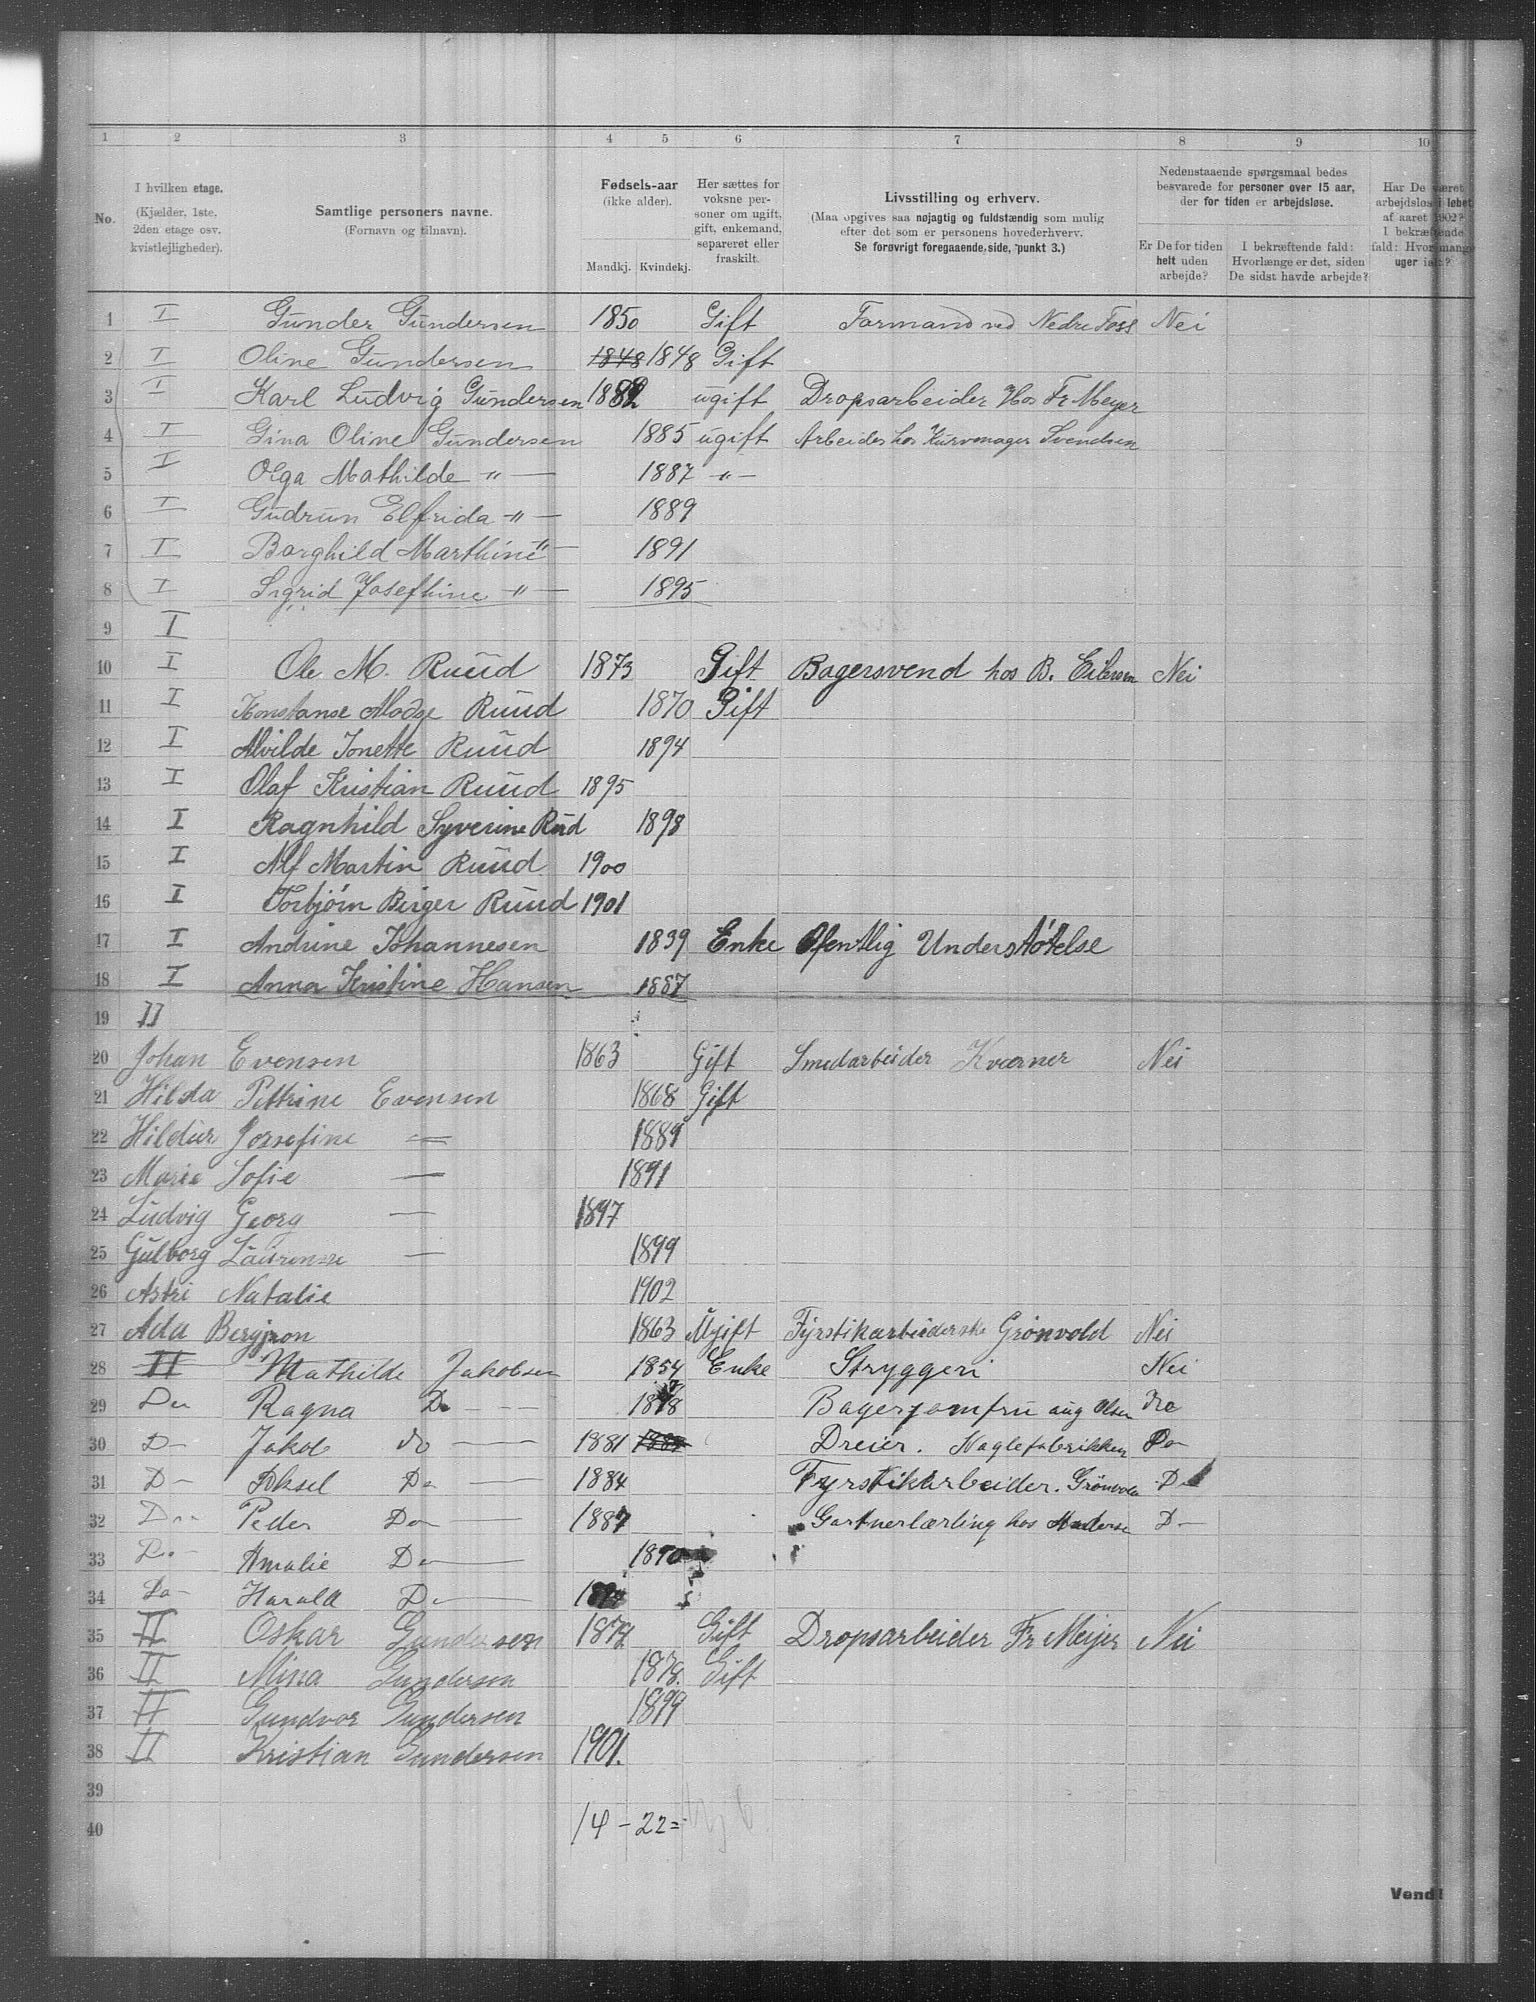 1 2 3 4 5 6 7 8 9 10
No. I hvilken etage. (Kjælder, 1ste. 2den etage osv. kvistlejligheder). Samtlige personers navne. (Fornavn og tilnavn). Fødsels-aar (ikke alder). Mandkj. Kvindekj. Her sættes for voksne personer om ugift, gift, enkemand, separeret eller fraskilt. Livsstilling og erhverv. (Maa opgives saa nøjagtig og fuldstændig som mulig efter det som er personens hovederhverv. Se forøvrigt foregaaende side, punkt 3.) Nedenstaaende spørgsmaal bedes besvarede for personer over 15 aar, der for tiden er arbejdsløse. Er De for tiden helt uden arbejde? I bekræftende fald: Hvorlænge er det, siden De sidst havde arbejde? Har De været arbejdsløs i løbet af aaret 1902? I bekræftende fald: Hvor mange uger ialt?
1 I Gunder Gundersen 1850 Gift Formand ved Nedre Foss Nei
2 I Oline Gundersen 1848 1848 Gift
3 I Karl Ludvig Gundersen 1882 ugift Dropsarbeider Hos Fr Meyer
4 I Gina Oline Gundersen 1885 ugift Arbeider hos Kurvemager Svendsen
5 I Olga Mathilde -"- 1887 -"-
6 I Gudrun Elfrida -"- 1889
7 I Borghild Marthine -"- 1891
8 I Sigrid Josefhine -"- 1895
9 I
10 I Ole M. Ruud 1873 Gift Bagersvend hos B. Eilersen Nei
11 I Konstanse Madge Ruud 1870 Gift
12 I Alvilde Jonette Ruud 1894
13 I Olaf Kristian Ruud 1895
14 I Ragnhild Syverine Rud 1898
15 I Alf Martin Ruud 1900
16 I Torbjørn Birger Ruud 1901
17 I Andrine Johannesen 1839 Enke Ofentlig Understøtelse
18 I Anna Kristine Hansen 1887
19 II
20 Johan Evensen 1863 Gift Smedarbeider Kværner Nei
21 Hilda Pettrine Evensen 1868 Gift
22 Hildur Jossefine — 1889
23 Marie Sofie — 1891
24 Ludvig Georg — 1897
25 Gulborg Laurense — 1899
26 Astri Natalie 1902
27 Ada Bergjron 1863 Ugift Fyrstikarbeiderske Grønvold Nei
28 II Mathilde Jakobsen 1854 Enke Stryggeri Nei
29 Do Ragna Do — 1878 Bagerjomfru aug Olsen Do
30 D— Jakob do — 1881 Dreier. Naglefabrikken Do
31 D— Aksel Do — 1884 Fyrstikarbeider. Grønvold D—
32 Do— Peder Do — 1887 Gartnerlærling hos Anderse D—
33 Do— Amalie Do — 1890
34 Do— Harald D—
35 II Oskar Gundersen 1877 Gift Dropsarbeider Fr Meijer Nei
36 II Mina Gundersen 1878. Gift
37 II Gundvor Gundersen 1899
38 II Kristian Gundersen 1901.
39
40 14 - 22 =
Vend!